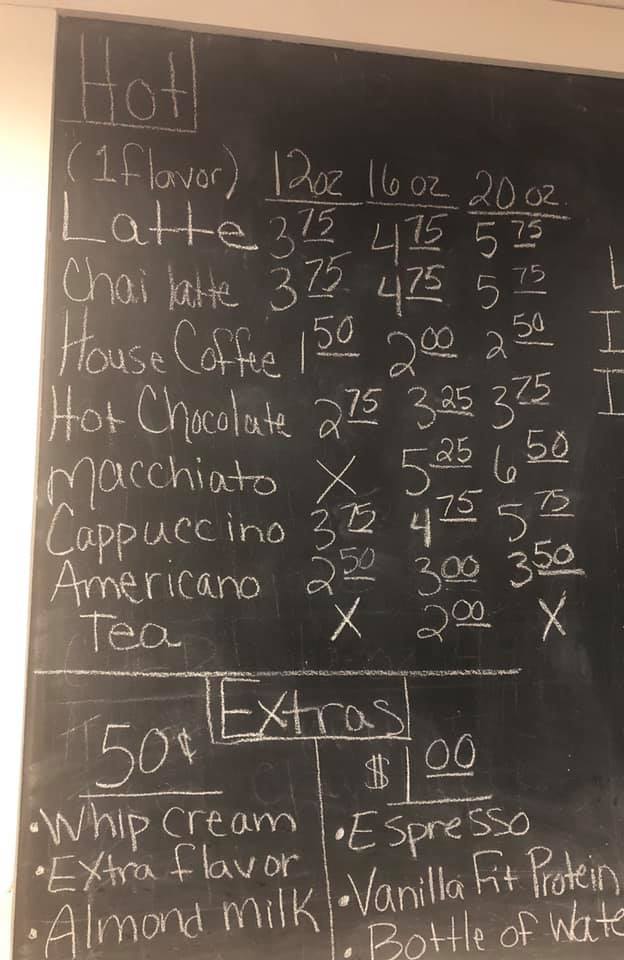 Hot
(1 flavor) 12oz 16 oz 20 oz.
Latte 3 75 4 75 5 75
Chai latte 3 75 4 75 5 75
House Coffee 1 50 2 00 2 50
Hot Chocolate 2 75 3 25 3 75
Macchiato X 5 25 6 50
Cappuccino 3 75 4 75 5 75
Americano 2 50 3 00 3 50
Tea X 2 00 X
Extras
50¢
• Whip cream
• Extra flavor
• Almond milk
$1 00
• Espresso
• Vanilla Fit Protein
• Bottle of Wate